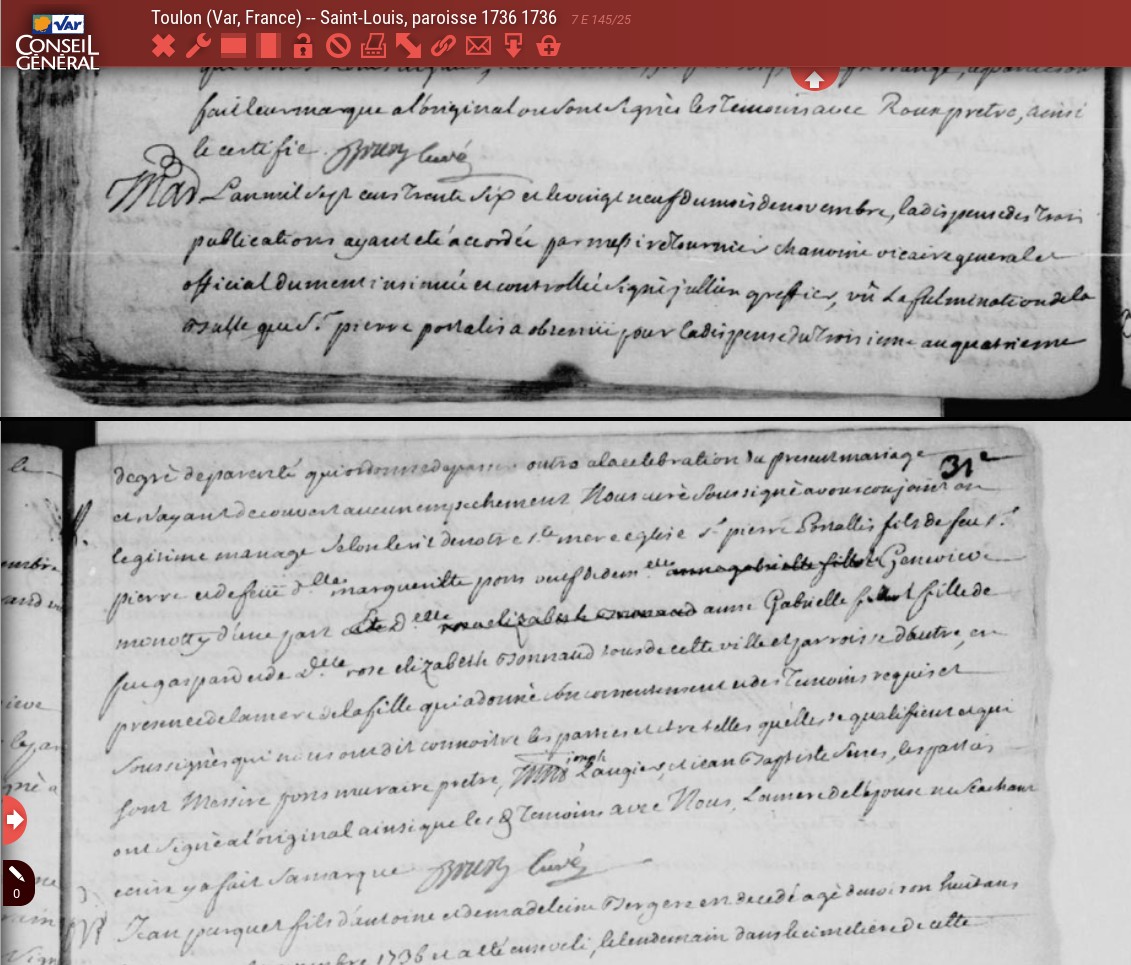 Toulon (Var, France) -- Saint-Louis, paroisse 1736 1736 7 E 145/25
VAR
CONSEIL
GÉNÉRAL
fait leur marque a l'original ou sont signés les temoins avec Roux pretre, ainsi
le certifie. Brun curé
Mar L'an mil sept cens trente six et le vingt neuf du mois de novembre, la dispense des trois
publications ayant eté accordée par messire Tournier chanoine vicaire general et
official dument insinuée et controllée signé jullien greffier, vû la fulmination de la
Bulle que Sr. pierre portalis a obtenüe pour la dispense du troisieme au quatrieme
31e
degré de parenté qui ordonne de passer outre a la celebration du present mariage
et n'ayant decouvert aucun empechement Nous curé soussigné avons conjoint en
legitime mariage selon le rit de notre ste. mere eglise sr. pierre Portallis fils de feu sr.
pierre et de feüe dlle. margueritte pons veuf de dem elle Genevieve
monotty d'une part et dlle anne Gabrielle fille de
feu gaspard et de dlle. rose elizabeth Bonnaud tous de cette ville et parroisse d'autre, en
presence de la mere de la fille qui a donné son consentement et des temoins requis et
soussignés qui nous ont dit connoitre les parties et etre telles qu'elles se qualifient et qui
sont Messire pons muraire pretre, joseph Laugier, et jean Baptiste Senes, les parties
ont signé a l'original ainsi que les temoins avec Nous, La mere de l'epouse ne sachant
ecrire y a fait sa marque Brun curé
Jean parquet fils d'antoine et de madeleine Bergere decedé agé d'environ huit ans
1736 et a eté enseveli, le lendemain dans le cimetiere de cette
0